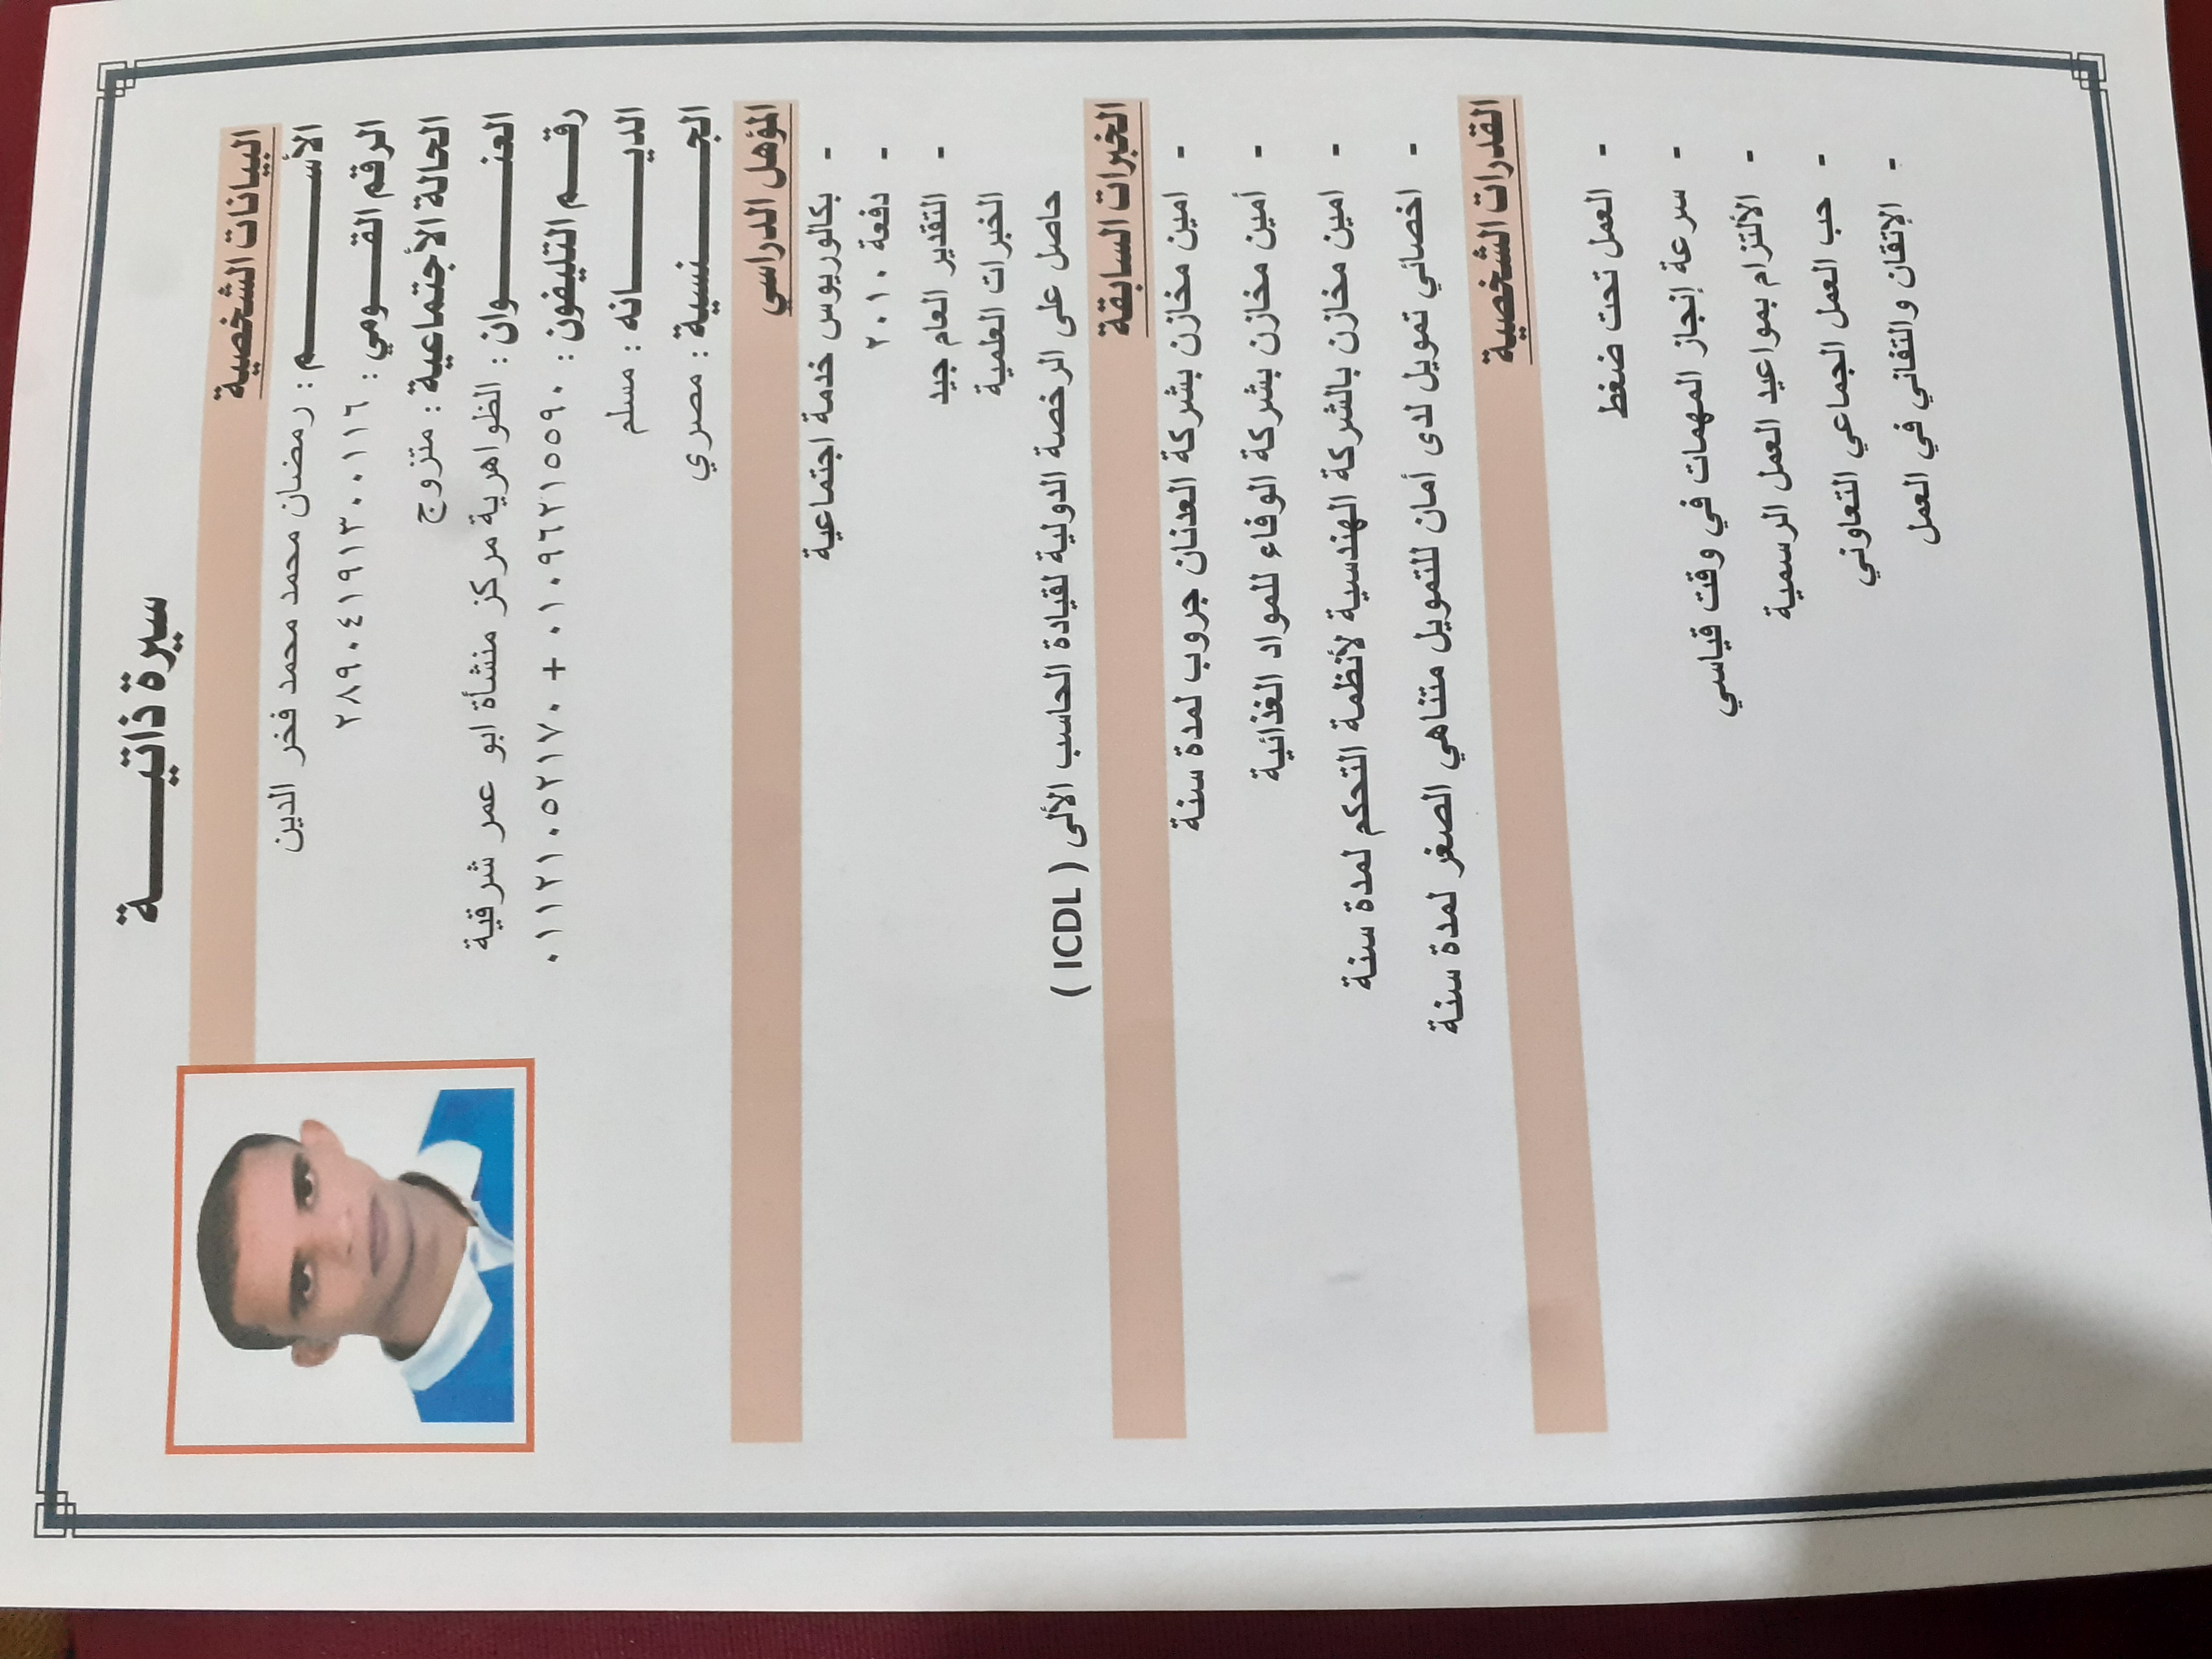 سيرة ذاتيـــــــة
البيانات الشخصية
الأســـــــــــم : رمضان محمد محمد فخر الدين
الرقم القـــومي : ٢٨٩٠٤١٩١٣٠٠١١٦
الحالة الأجتماعية : متزوج
العنــــــــوان : الظواهرية مركز منشأة ابو عمر شرقية
رقـــم التليفون : ٠١٠٩٦٢١٥٥٩٠ + ٠١١٢١٠٥٢١٧٠
الديـــــــانه : مسلم
الجــــنسية : مصري
المؤهل الدراسي
- بكالوريوس خدمة اجتماعية
- دفعة ٢٠١٠
- التقدير العام جيد
الخبرات العلمية
حاصل على الرخصة الدولية لقيادة الحاسب الألى ( ICDL )
الخبرات السابقة
- امين مخازن بشركة العدنان جروب لمدة سنة
- أمين مخازن بشركة الوفاء للمواد الغذائية
- امين مخازن بالشركة الهندسية لأنظمة التحكم لمدة سنة
- اخصائي تمويل لدى أمان للتمويل متناهي الصغر لمدة سنة
القدرات الشخصية
- العمل تحت ضغط
- سرعة إنجاز المهمات في وقت قياسي
- الألتزام بمواعيد العمل الرسمية
- حب العمل الجماعي التعاوني
- الإتقان والتفاني في العمل